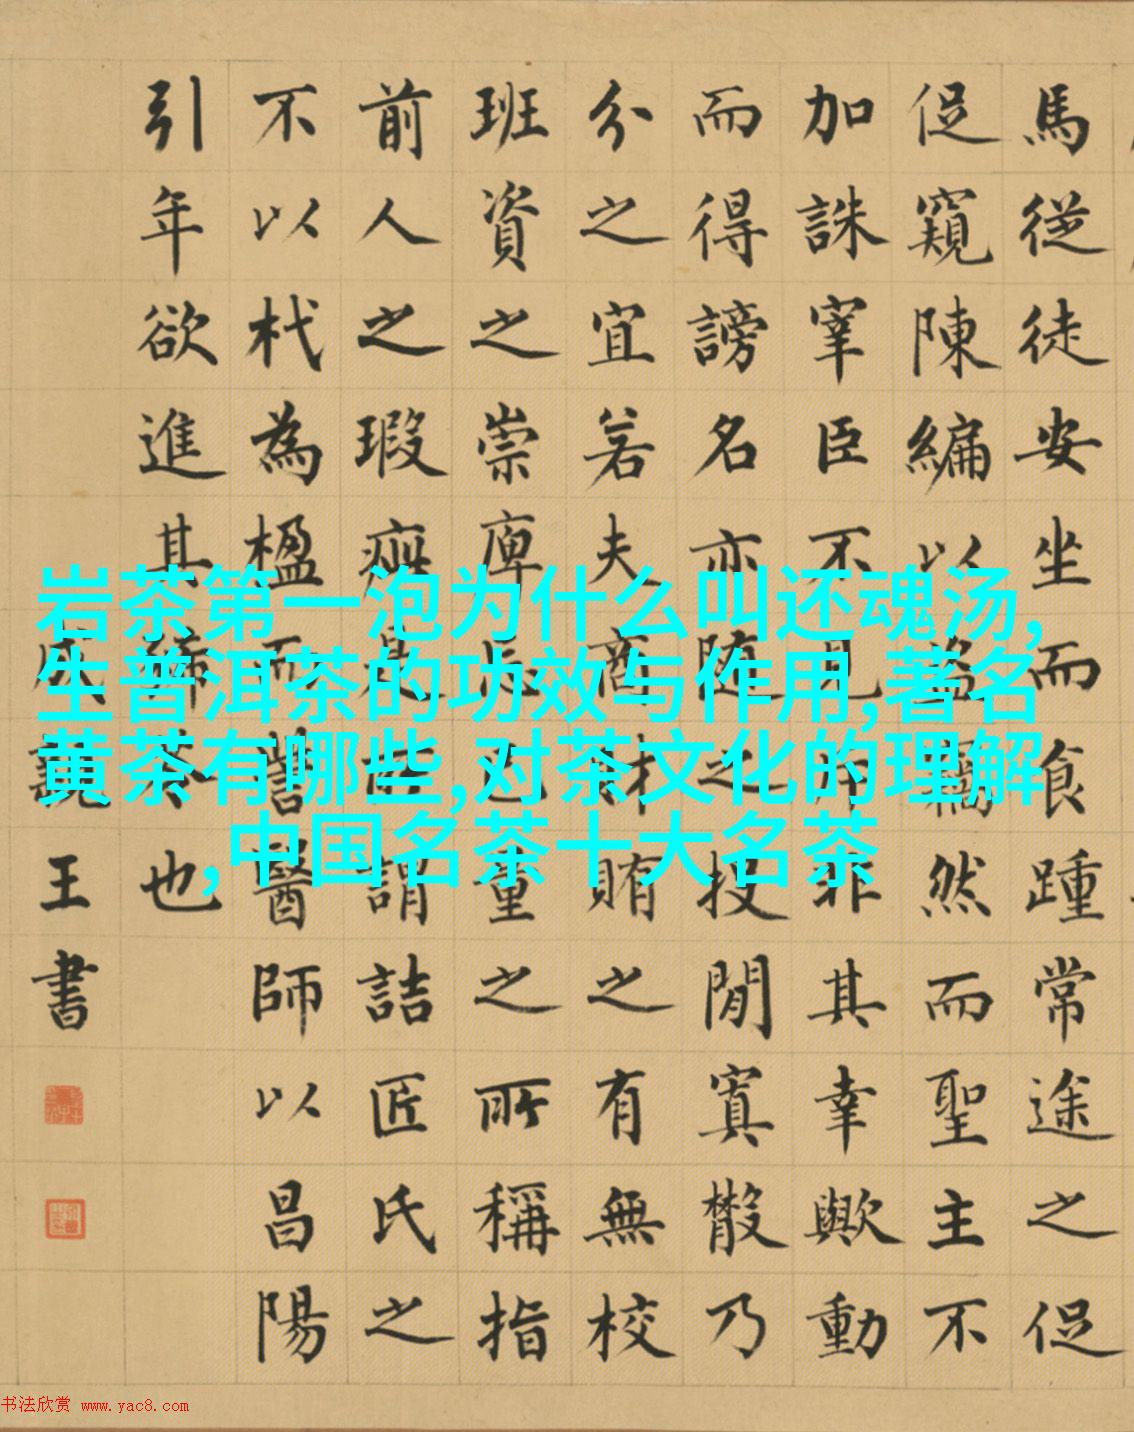 馬從徒安坐而食踵常途之促
促窺陳編以盜竊然而聖主不
加誅宰臣不見斥非其幸歟動
而得謗名亦隨之投閒寘散乃
分之宜若夫商財賄之有無校
班資之崇庳忘己量之所稱指
前人之瑕疵是所謂詰匠氏之
不以杙為楹而訾醫師以昌陽
引年欲進其豨苓也
成親王書
岩茶第一泡为什么叫还魂汤,
生普洱茶的功效与作用,著名
黄茶有哪些,对茶文化的理解
,中国名茶十大名茶
书法欣赏 www.yac8.com